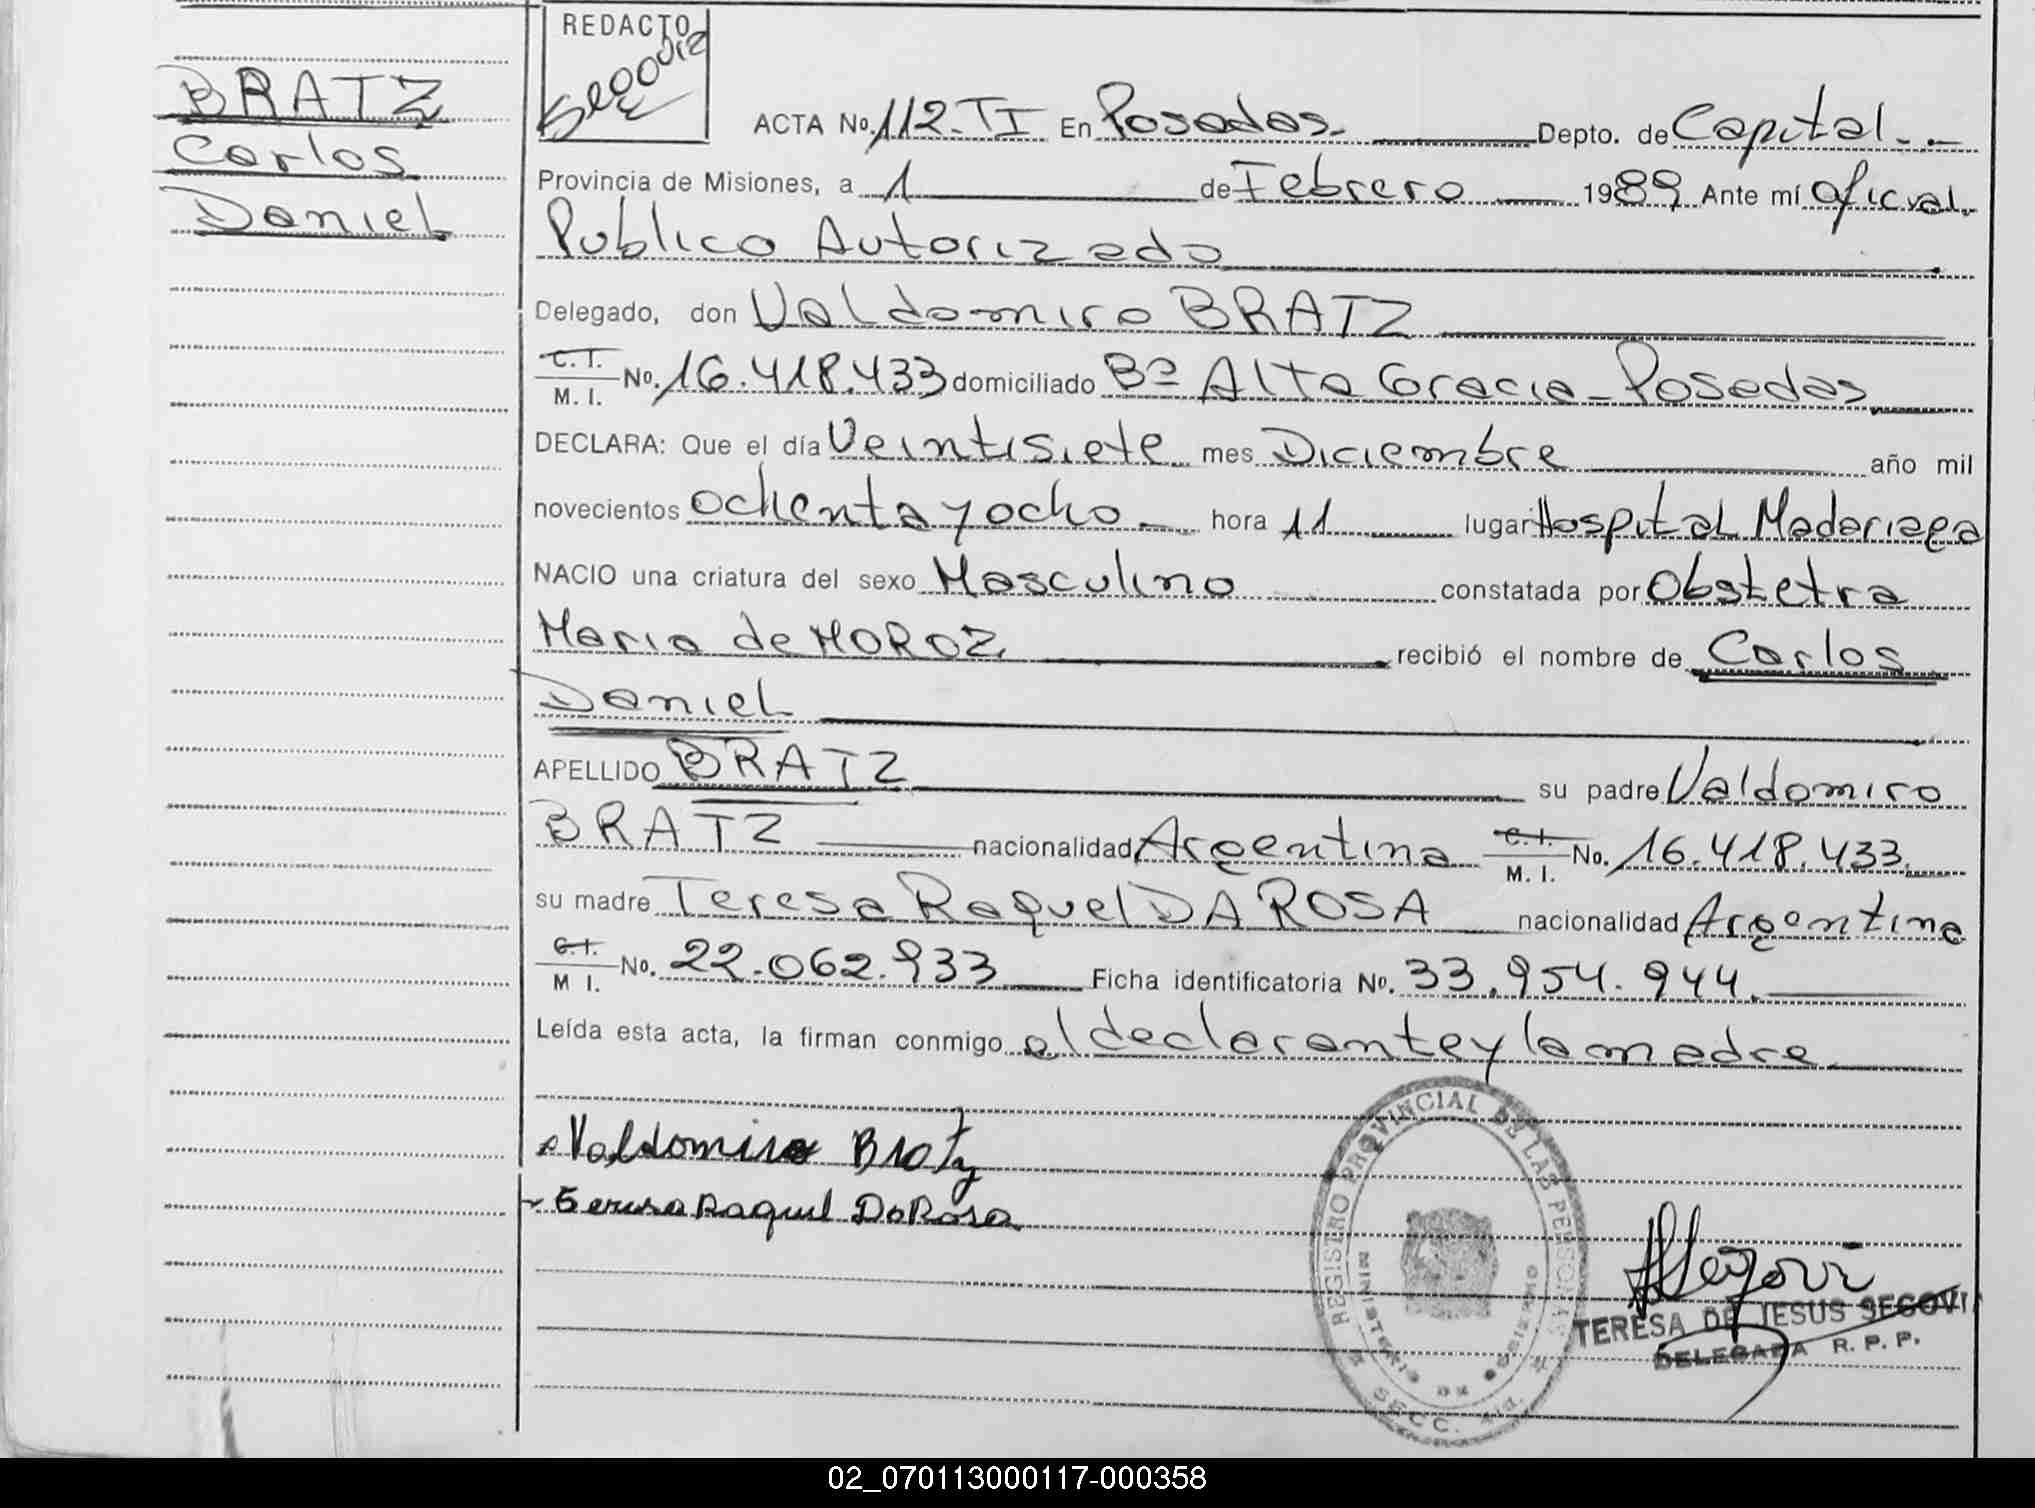 BRATZ
Carlos
Daniel
REDACTO
Segovia
ACTA No. 112-TI En Posadas. Depto. de Capital
Provincia de Misiones, a 1 de Febrero 1989 Ante mí oficial
Publico Autorizado
Delegado, don Valdomiro BRATZ
C. I.
M. I. No. 16.418.433 domiciliado Bº Alta Gracia - Posadas
DECLARA: Que el día Veintisiete mes Diciembre año mil
novecientos ochenta y ocho hora 11 lugar Hospital Madariaga
NACIO una criatura del sexo Masculino constatada por Obstetra
Maria de MOROZ recibió el nombre de Carlos
Daniel
APELLIDO BRATZ su padre Valdomiro
BRATZ nacionalidad Argentina C. I. M. I. No. 16.418.433
su madre Teresa Raquel DA ROSA nacionalidad Argentina
C. I.
M I. No. 22.062.933 Ficha identificatoria No. 33.954.944.
Leída esta acta, la firman conmigo el declarante y la madre
Valdomiro Bratz
Teresa Raquel DaRosa
REGISTRO PROVINCIAL DE LAS PERSONAS
MINISTERIO DE GOBIERNO
SECC.
Segovia
TERESA DE JESUS SEGOVI
DELEGADA R. P. P.
02_070113000117-000358